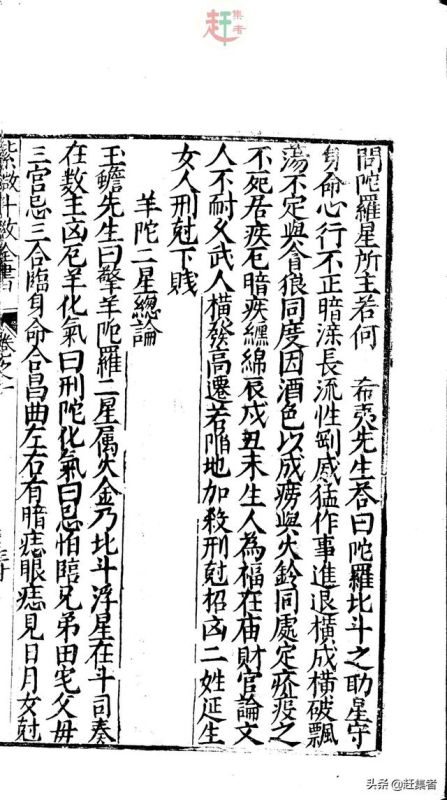 赶集者
問陀羅星所主若何　希夷先生答曰陀羅北斗之助星守
身命心行不正暗淚長流性剛威猛作事進退橫成橫破飄
蕩不定與貪狼同度因酒色以成癆與火鈴同處定疥疫之
不死居疾厄暗疾纏綿辰戌丑未生人為福在庙財官論文
人不耐久武人橫發高遷若陷地加殺刑尅招凶二姓延生
女人刑尅下賎
羊陀二星總論
玉蟾先生曰擎羊陀羅二星属火金乃北斗浮星在斗司奏
在数主凶厄羊化氣曰刑陀化氣曰忌怕臨兄弟田宅父母
三宮忌三合臨身命合昌曲左右有暗痣眼痣見日月女尅
紫微斗数全書 卷之一
头条 @赶集者